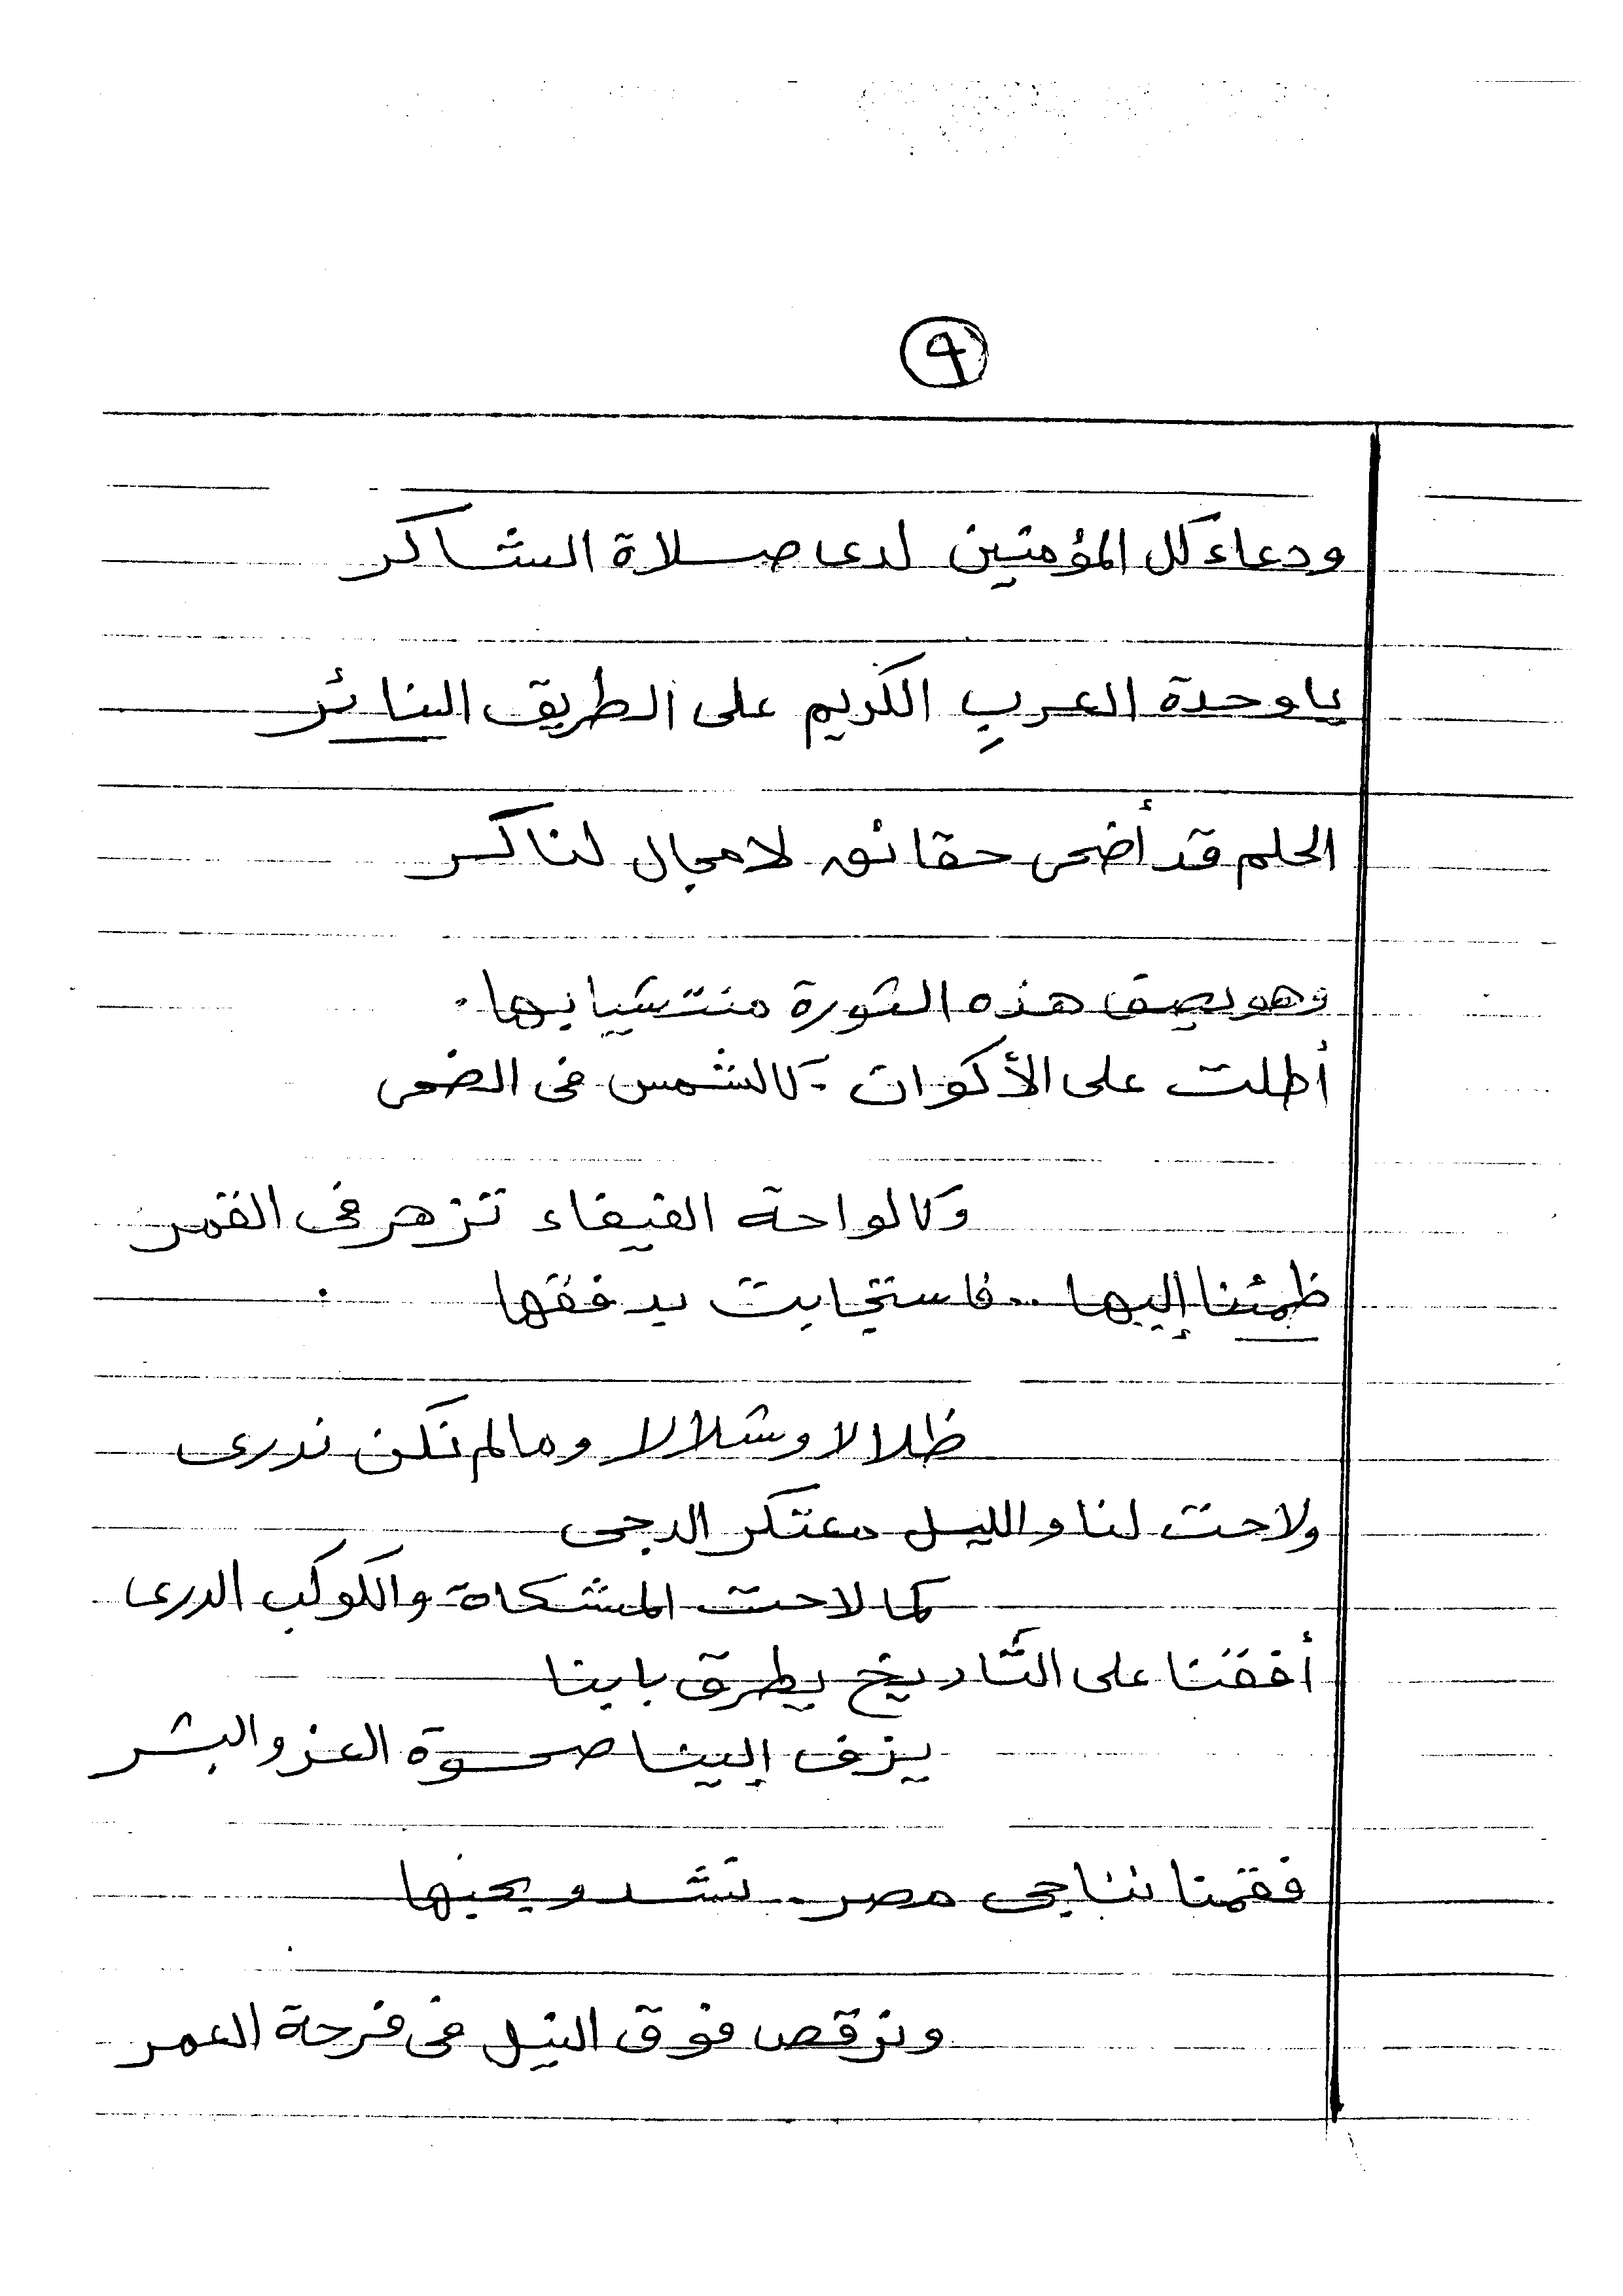 ٩
ودعاء كل المؤمنين لدى صلاة الشاكر
يا وحدة العربِ الكريم على الطريق النائر
الحلم قد أضحى حقائق لا مجال لناكر
وهو يصف هذه الثورة منتشيا بها.
أطلت على الأكوان - كالشمس فى الضحى
وكالواحة الفيفاء تزهر فى القمر
ظمئنا إليها .. فاستجابت بدفقها
ظلالا وشلالا ومالم نكن ندرى
ولاحت لنا والليل معتكر الدجى
كما لاحت المشكاة والكوكب الدرى
أفقنا على التَّاريخ يطرق بابنا
يزف إلينا صحوة العز والبشر
فقمنا نناجى مصر.. تشدو بحبها
ونرقص فوق النيل فى فرحة العمر